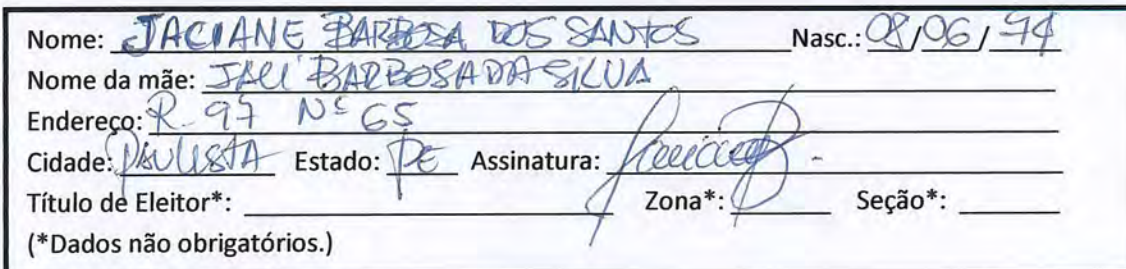 Nome: JACIANE BARBOSA DOS SANTOS Nasc.: 08/06/74
Nome da mãe: JACI BARBOSA DA SILVA
Endereço: R. 97 Nº 65
Cidade: PAULISTA Estado: PE Assinatura:
Título de Eleitor*: Zona*: Seção*:
(*Dados não obrigatórios.)